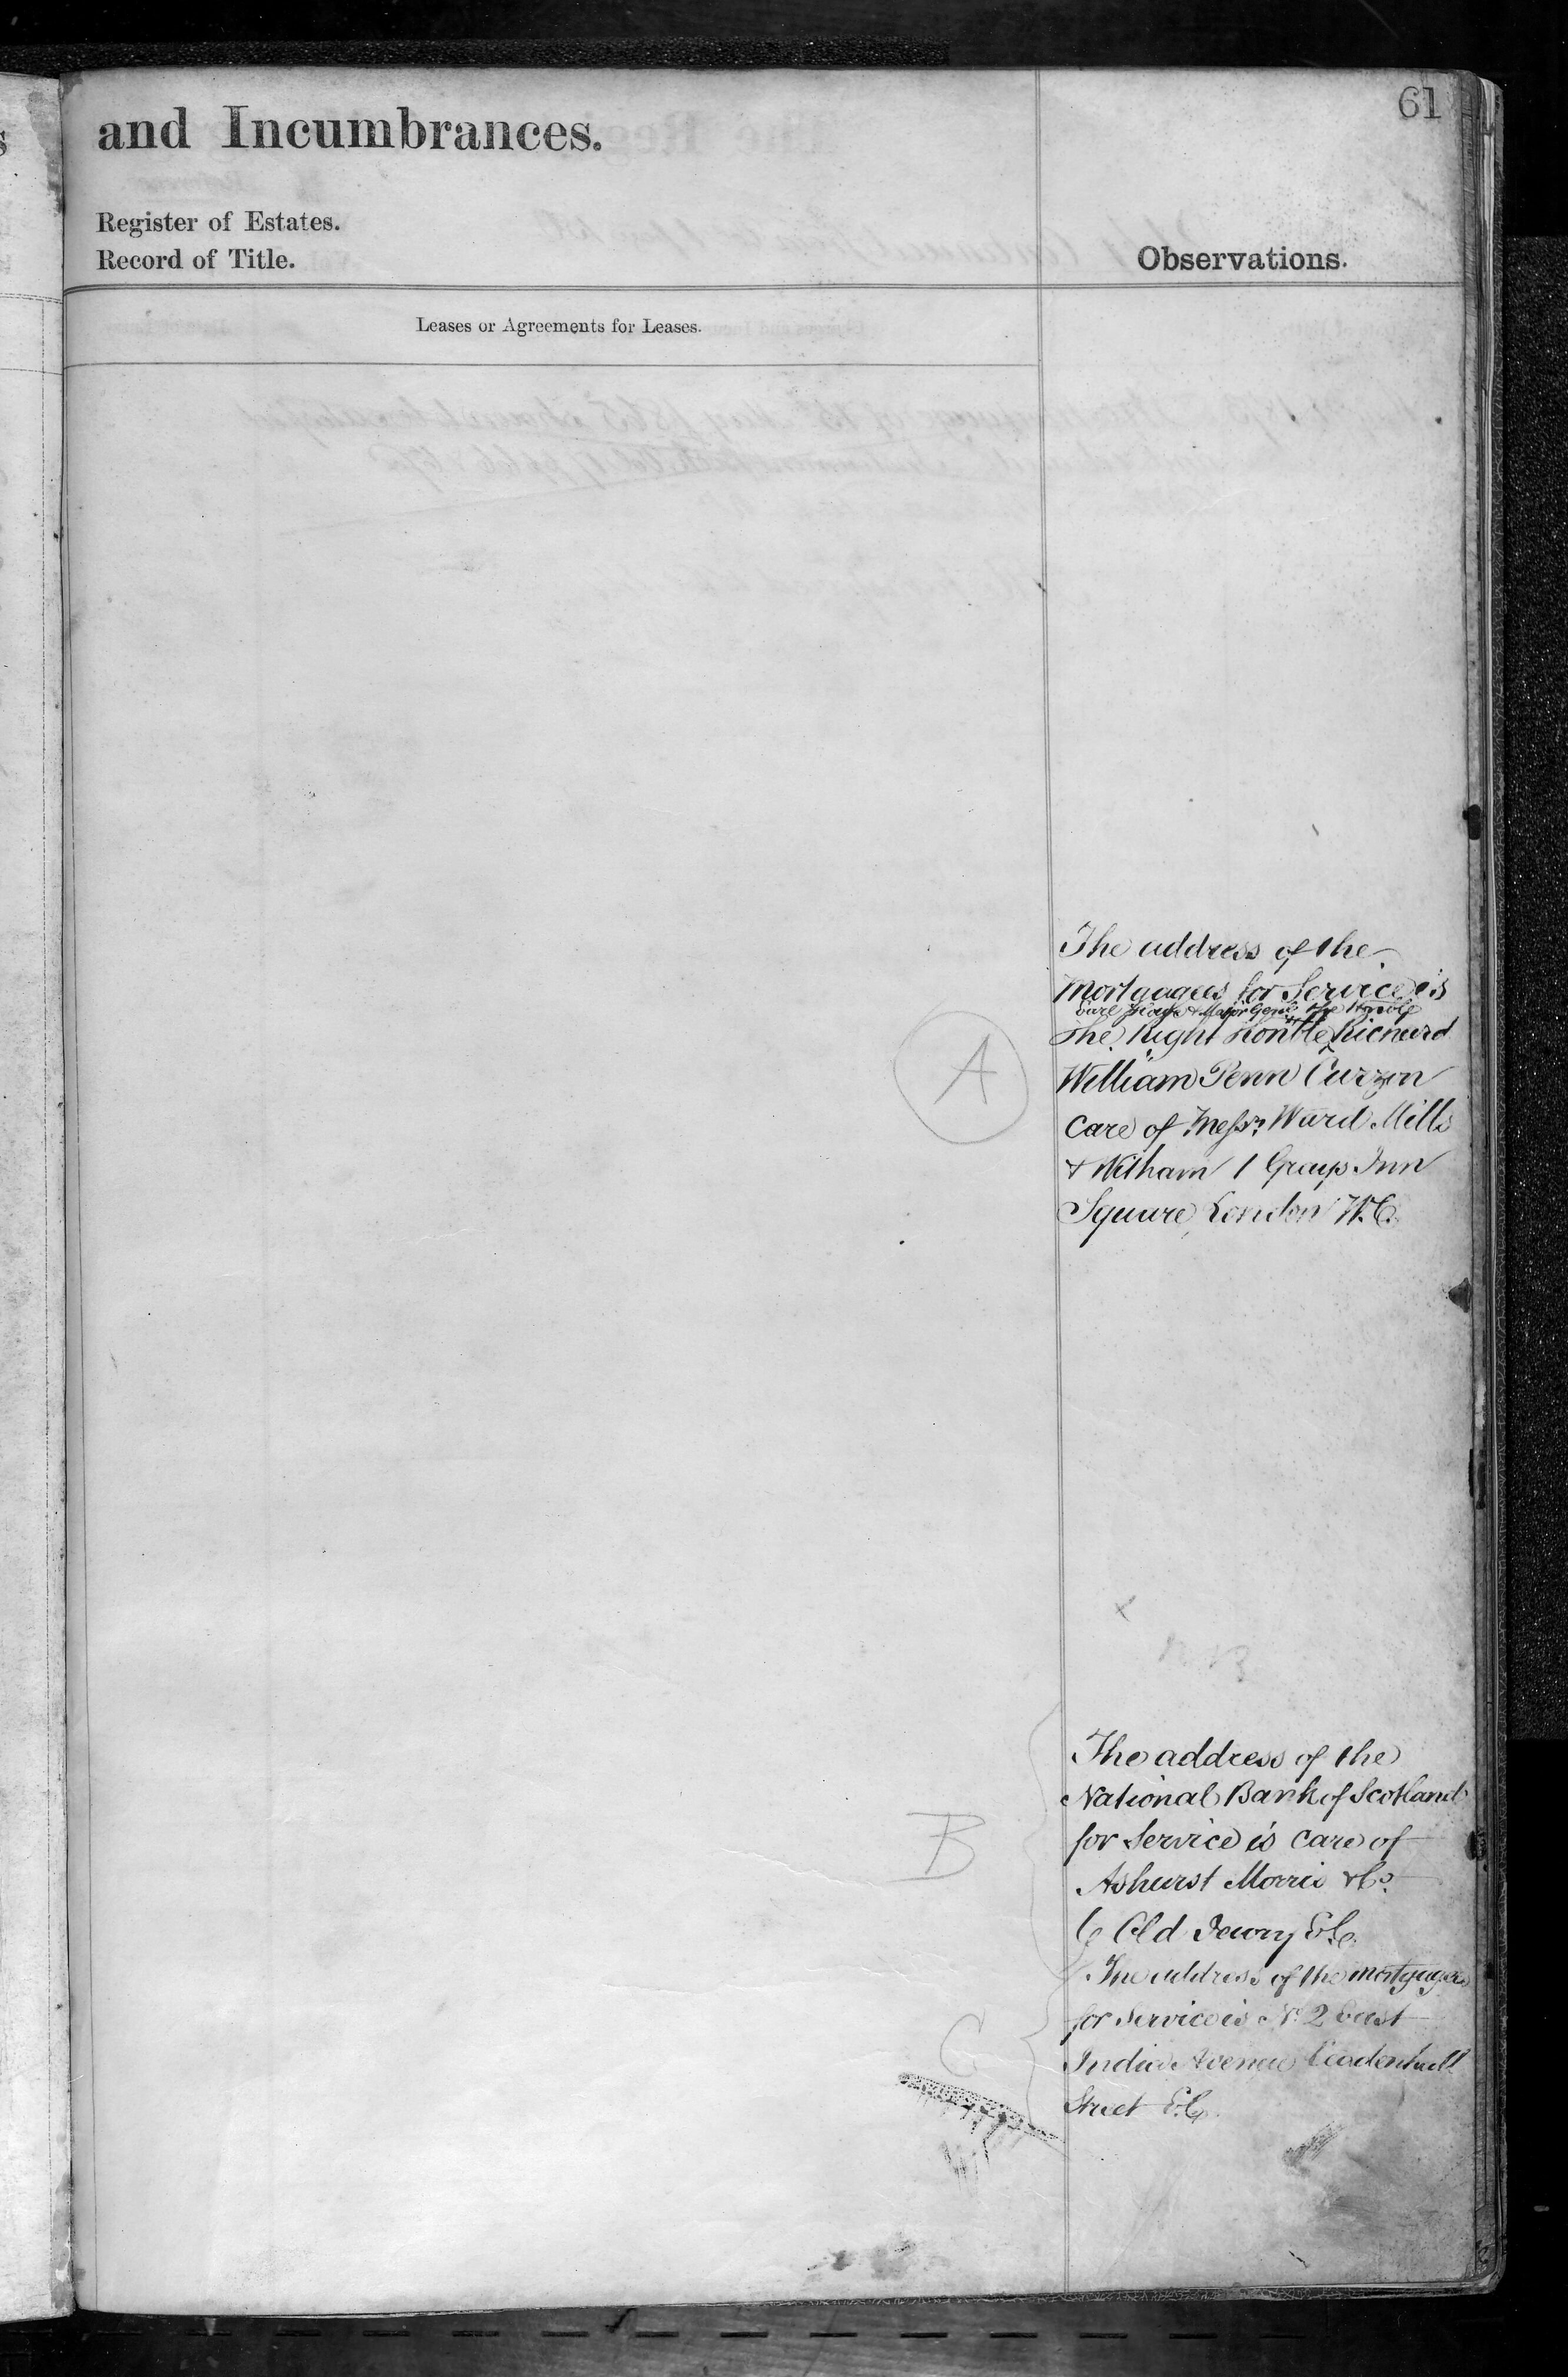 61
and Incumbrances.
Register of Estates.
Record of Title.
Observations.
Leases or Agreements for Leases.
The address of the
Mortgagees for Service is
Earl Howe & Major Genl. the Honble
The Right Honble Richard
William Penn Curzon
A
care of Messrs Ward Mills
& Witham 1 Grays Inn
Square London W.C.
x
The address of the
National Bank of Scotland
for Service is care of
B
Ashurst Morris & Co.
6 Old Jewry E.C.
The address of the mortgagees
for Service is No. 2 East
C
India Avenue Leadenhall
Street E.C.